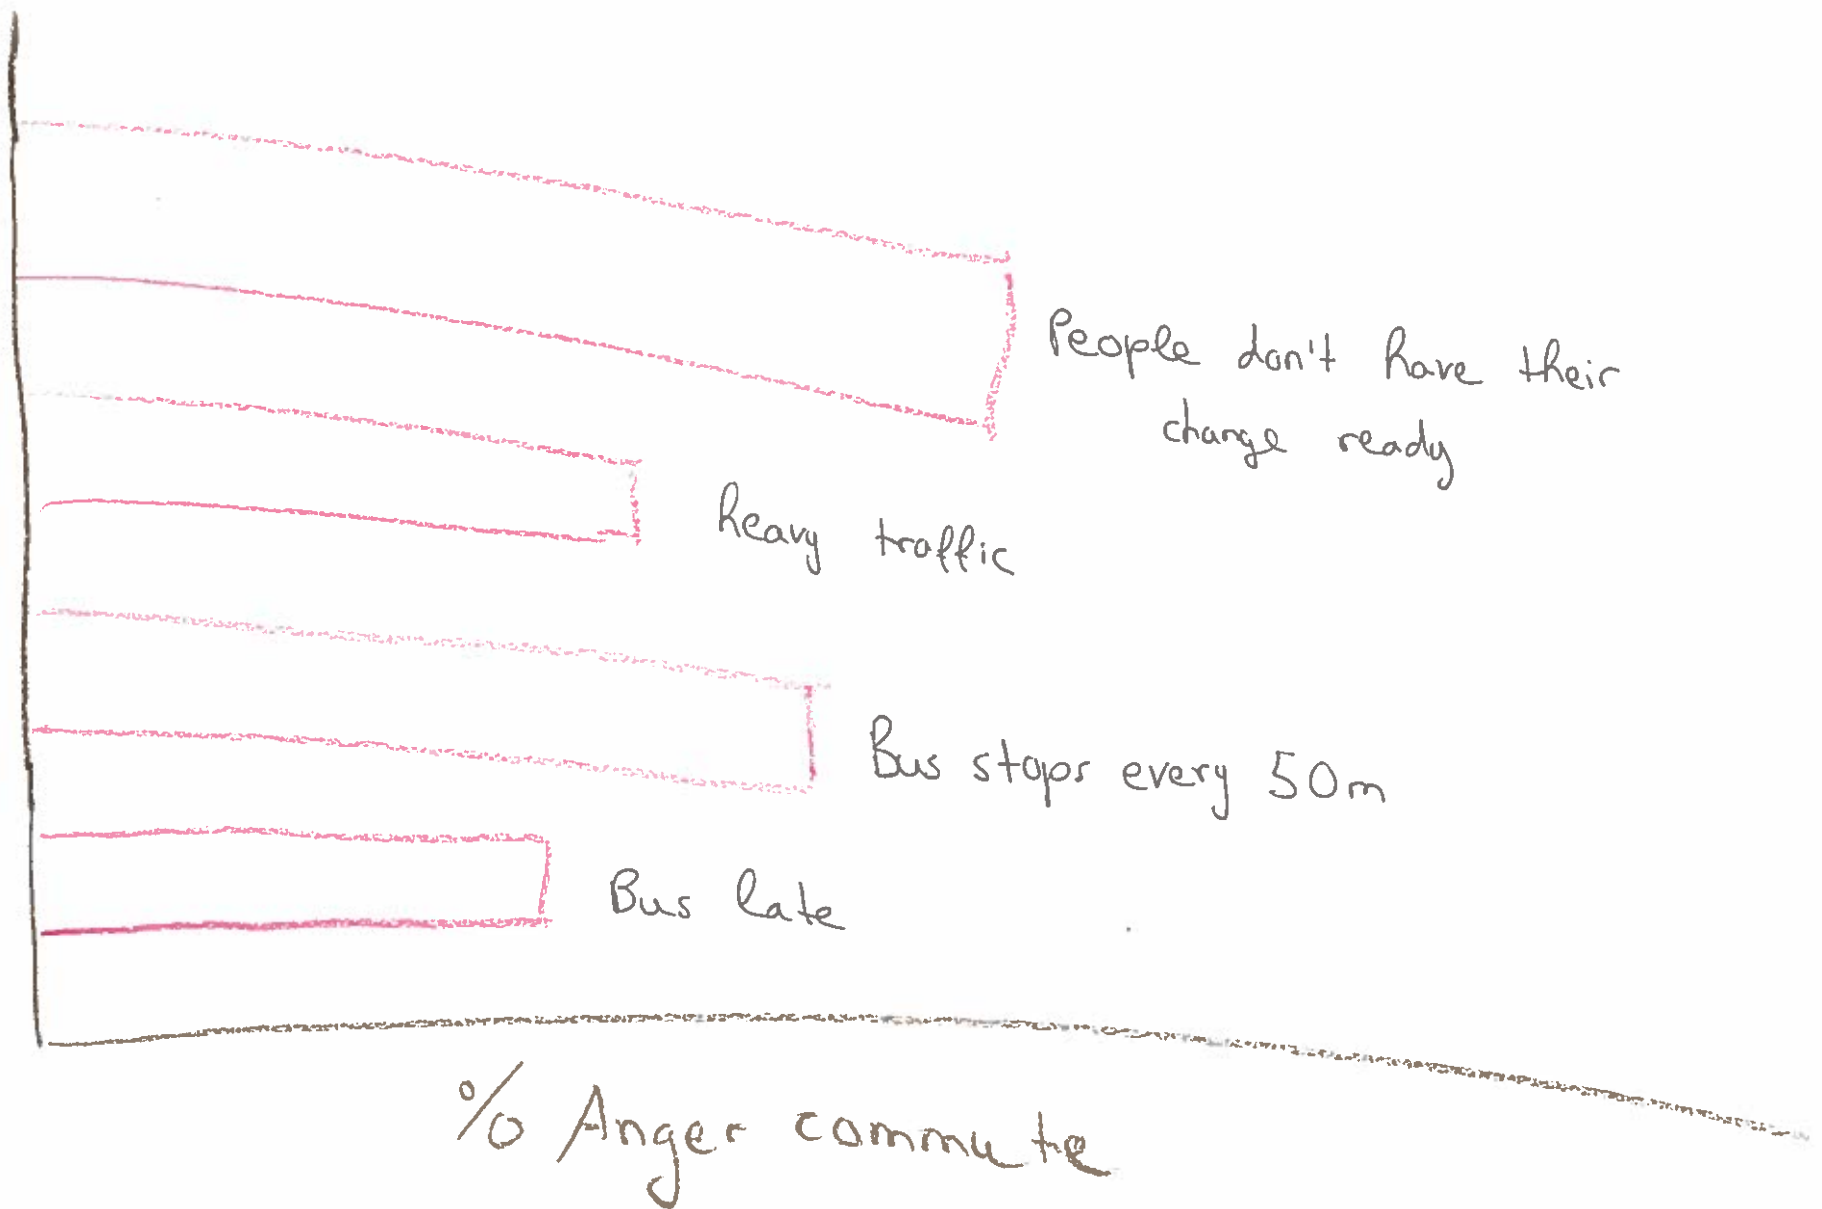 People don't have their
change ready
heavy traffic
Bus stops every 50m
Bus late
% Anger commute